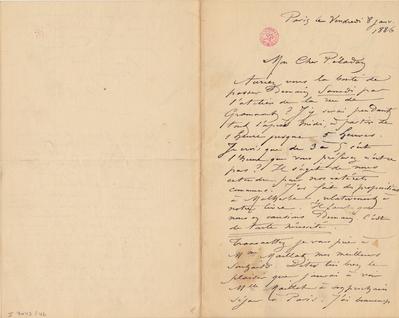 Paris le Vendredi 8 janv.
1886
Mon Cher Péladan
Auriez vous la bonté de
passer Demain Samedi par
l'atelier de la rue de
Gramont ? J'y serai pendant
tout l'après midi, à partir de
1 heure jusque 5 heures.
Je crois que de 3 à 5 c'est
l'heure que vous préférez n'est ce
pas ? Il s'agit de nous
entendre pour nos intérêts
communs. J'ai fait des propositions
à relativement à
notre livre. Il faut que
nous en causions Demain, c'est
de toute nécessité.
Transmettez je vous prie à
Mm Maillat mes meilleurs
souhaits. Dites lui bien le
plaisir que j'aurai à voir
Mlle Maillat à son prochain
séjour à Paris. J'ai beaucoup